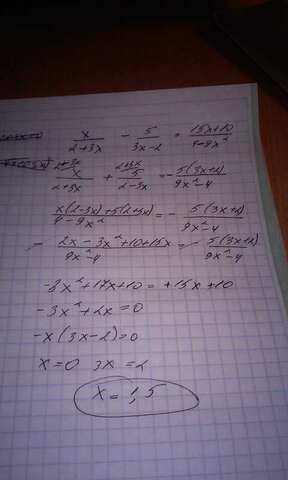 x/(2+3x) - 5/(3x-2) = (15x+10)/(4-9x²)
x/(2+3x) + 5/(2-3x) = -5(3x+2)/(9x²-4)
(x(2-3x)+5(2+3x))/(4-9x²) = - 5(3x+2)/(9x²-4)
- (2x-3x²+10+15x)/(9x²-4) = - 5(3x+2)/(9x²-4)
-3x²+17x+10 = +15x+10
-3x²+2x=0
-x(3x-2)=0
x=0 3x=2
x=1,5